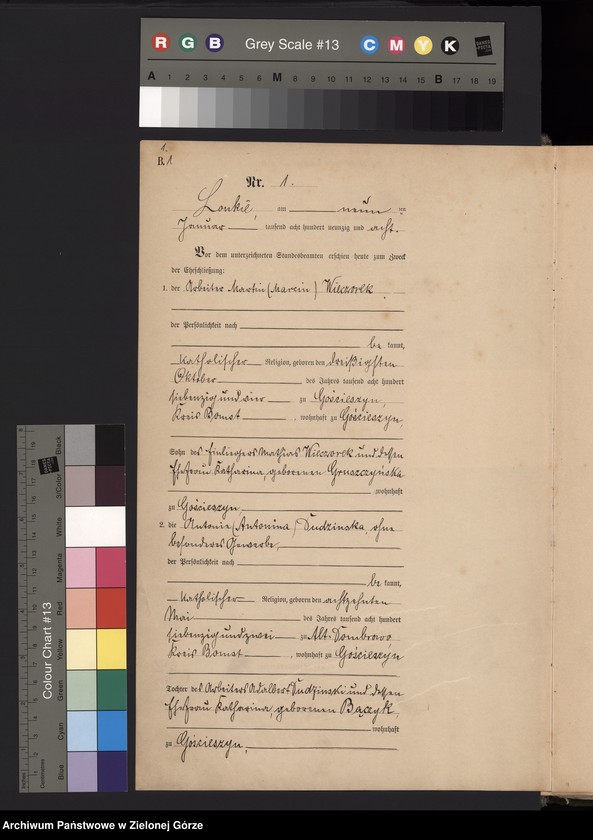 R G B Grey Scale #13 C M Y K DANES PICTA
A 1 2 3 4 5 6 M 8 9 10 11 12 13 14 15 B 17 18 19
1.
B.1
Nr. 1.
am neun ten
Januar tausend acht hundert neunzig und acht.
Vor dem unterzeichneten Standesbeamten erschien heute zum Zweck
der Eheschließung:
1. der Arbeiter Martin (Marcin) Wieczorek
der Persönlichkeit nach
be kannt,
katholischer Religion, geboren den dreißigsten
Oktober des Jahres tausend acht hundert
siebenzig und vier zu Gościeszyn,
Kreis Bomst, wohnhaft zu Gościeszyn,
Sohn des Einliegers Mathias Wieczorek und dessen
Ehefrau Katharina, geborenen Gruszczyńska
wohnhaft
zu Gościeszyn,
2. die Antonie (Antonina) Dudzinska ohne
besonderes Gewerbe,
der Persönlichkeit nach
be kannt,
katholischer Religion, geboren den achtzehnten
Mai des Jahres tausend acht hundert
siebenzig und zwei zu Alt-Dombrowo
Kreis Bomst, wohnhaft zu Gościeszyn
Tochter des Arbeiters Adalbert Dudzinski und dessen
Ehefrau Katharina, geborenen Bączyk,
wohnhaft
zu Gościeszyn,
Colour Chart #13
Blue Cyan Green Yellow Red Magenta White 3/Color Black
Inches Centimetres
Archiwum Państwowe w Zielonej Górze